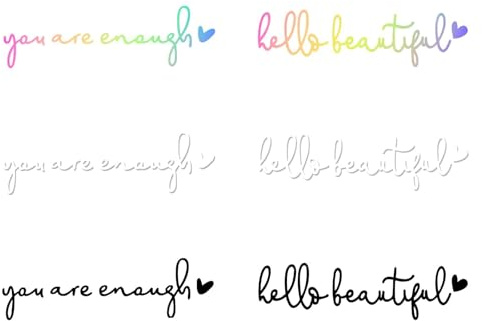 you are enough
hello beautiful
you are enough
hello beautiful
you are enough
hello beautiful